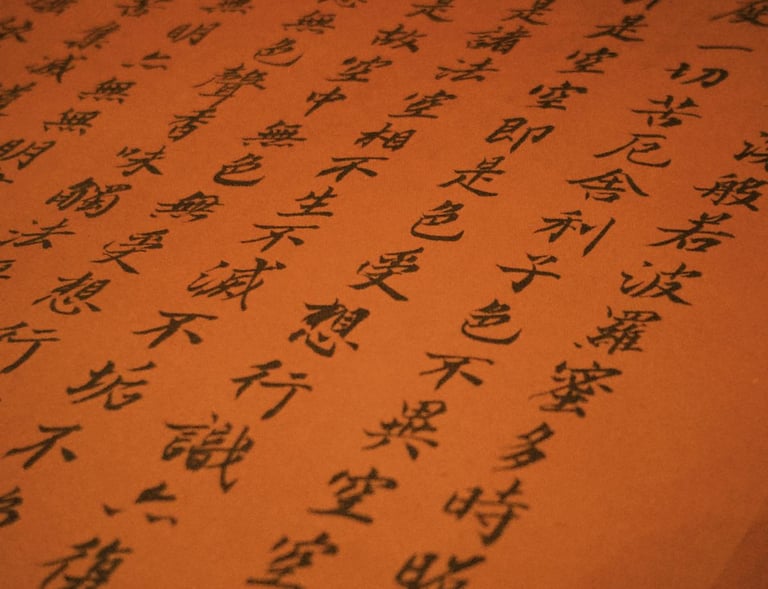 般若波羅蜜多時照
度一切苦厄舍利子色不異空空
是空空即是色受想行識亦復
是諸法空相不生不滅不垢不
是故空中無色無受想行
無色聲香味觸法
無明亦無無明
苦集滅